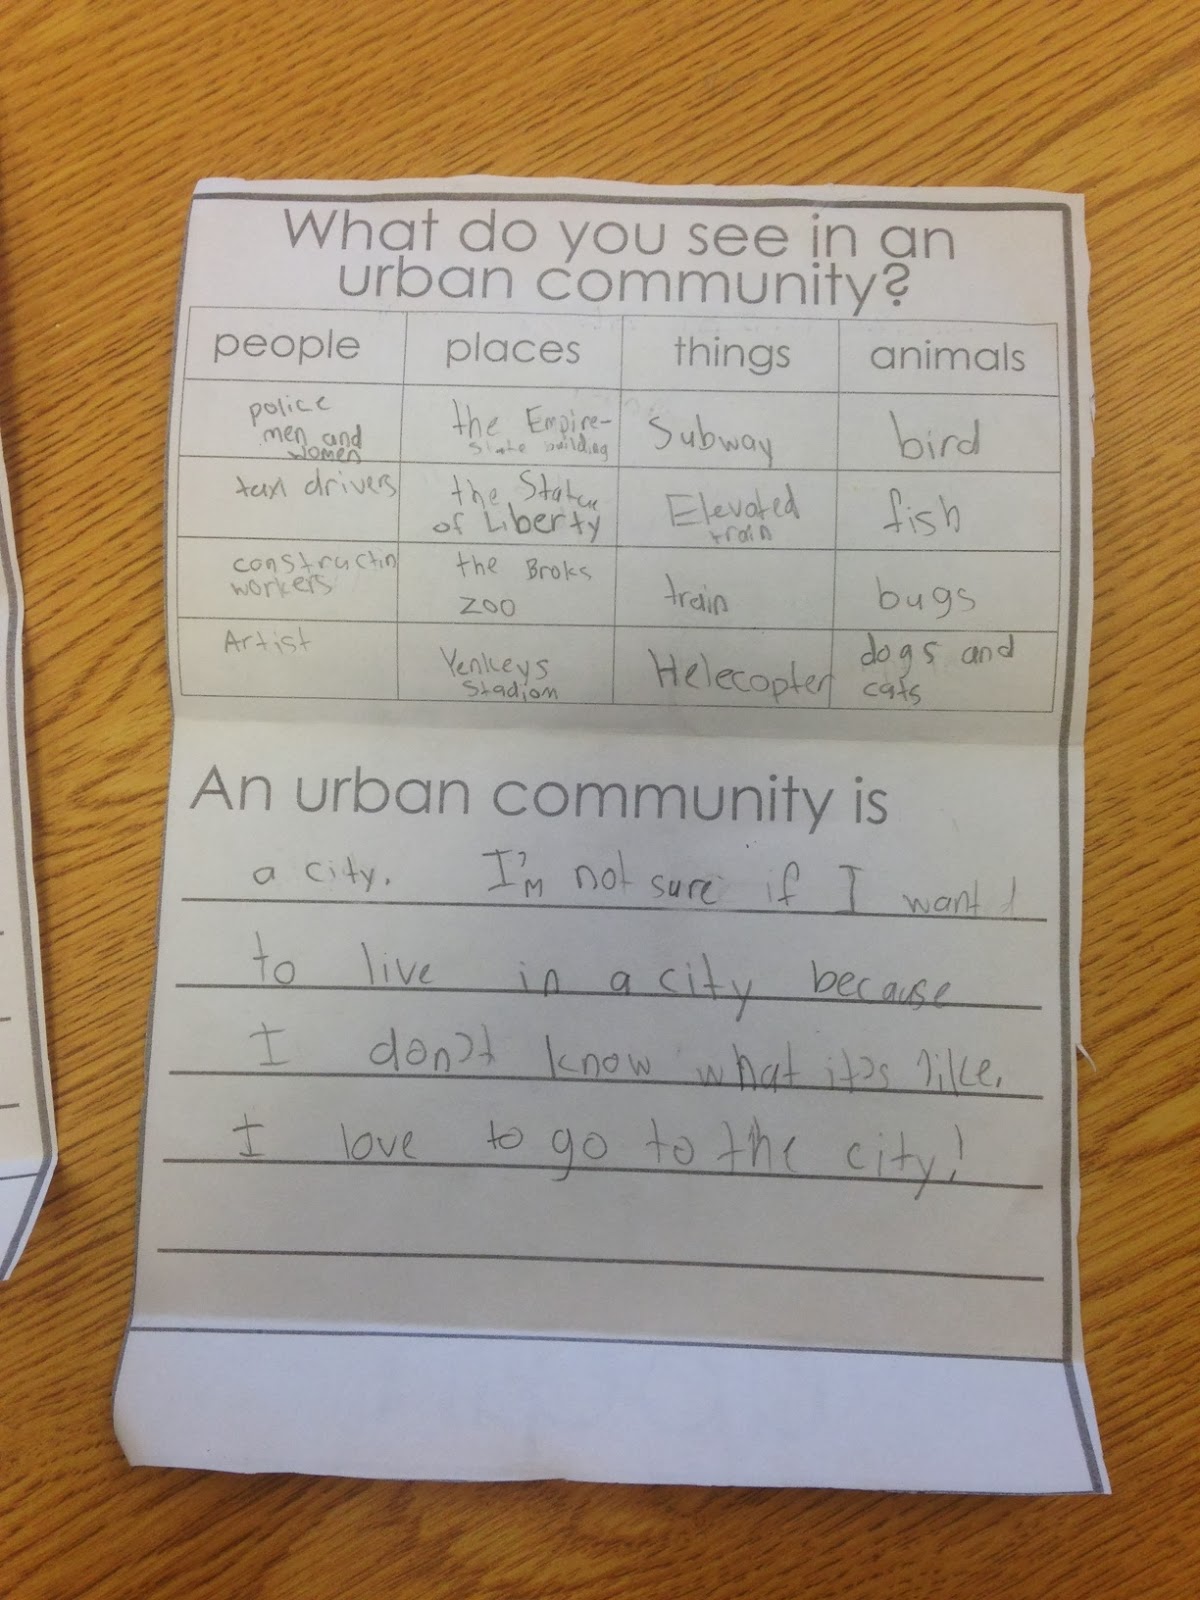 What do you see in an
urban community?
people places things animals
police
men and
women
the Empire-
State building
Subway
bird
taxi drivers
the Statue
of Liberty
Elevated
train
fish
constructin
workers
the Broks
zoo
train
bugs
Artist
Yenkeys
Stadiom
Helecopter
dogs and
cats
An urban community is
a city. I'm not sure if I want
to live in a city because
I don't know what it's like.
I love to go to the city!